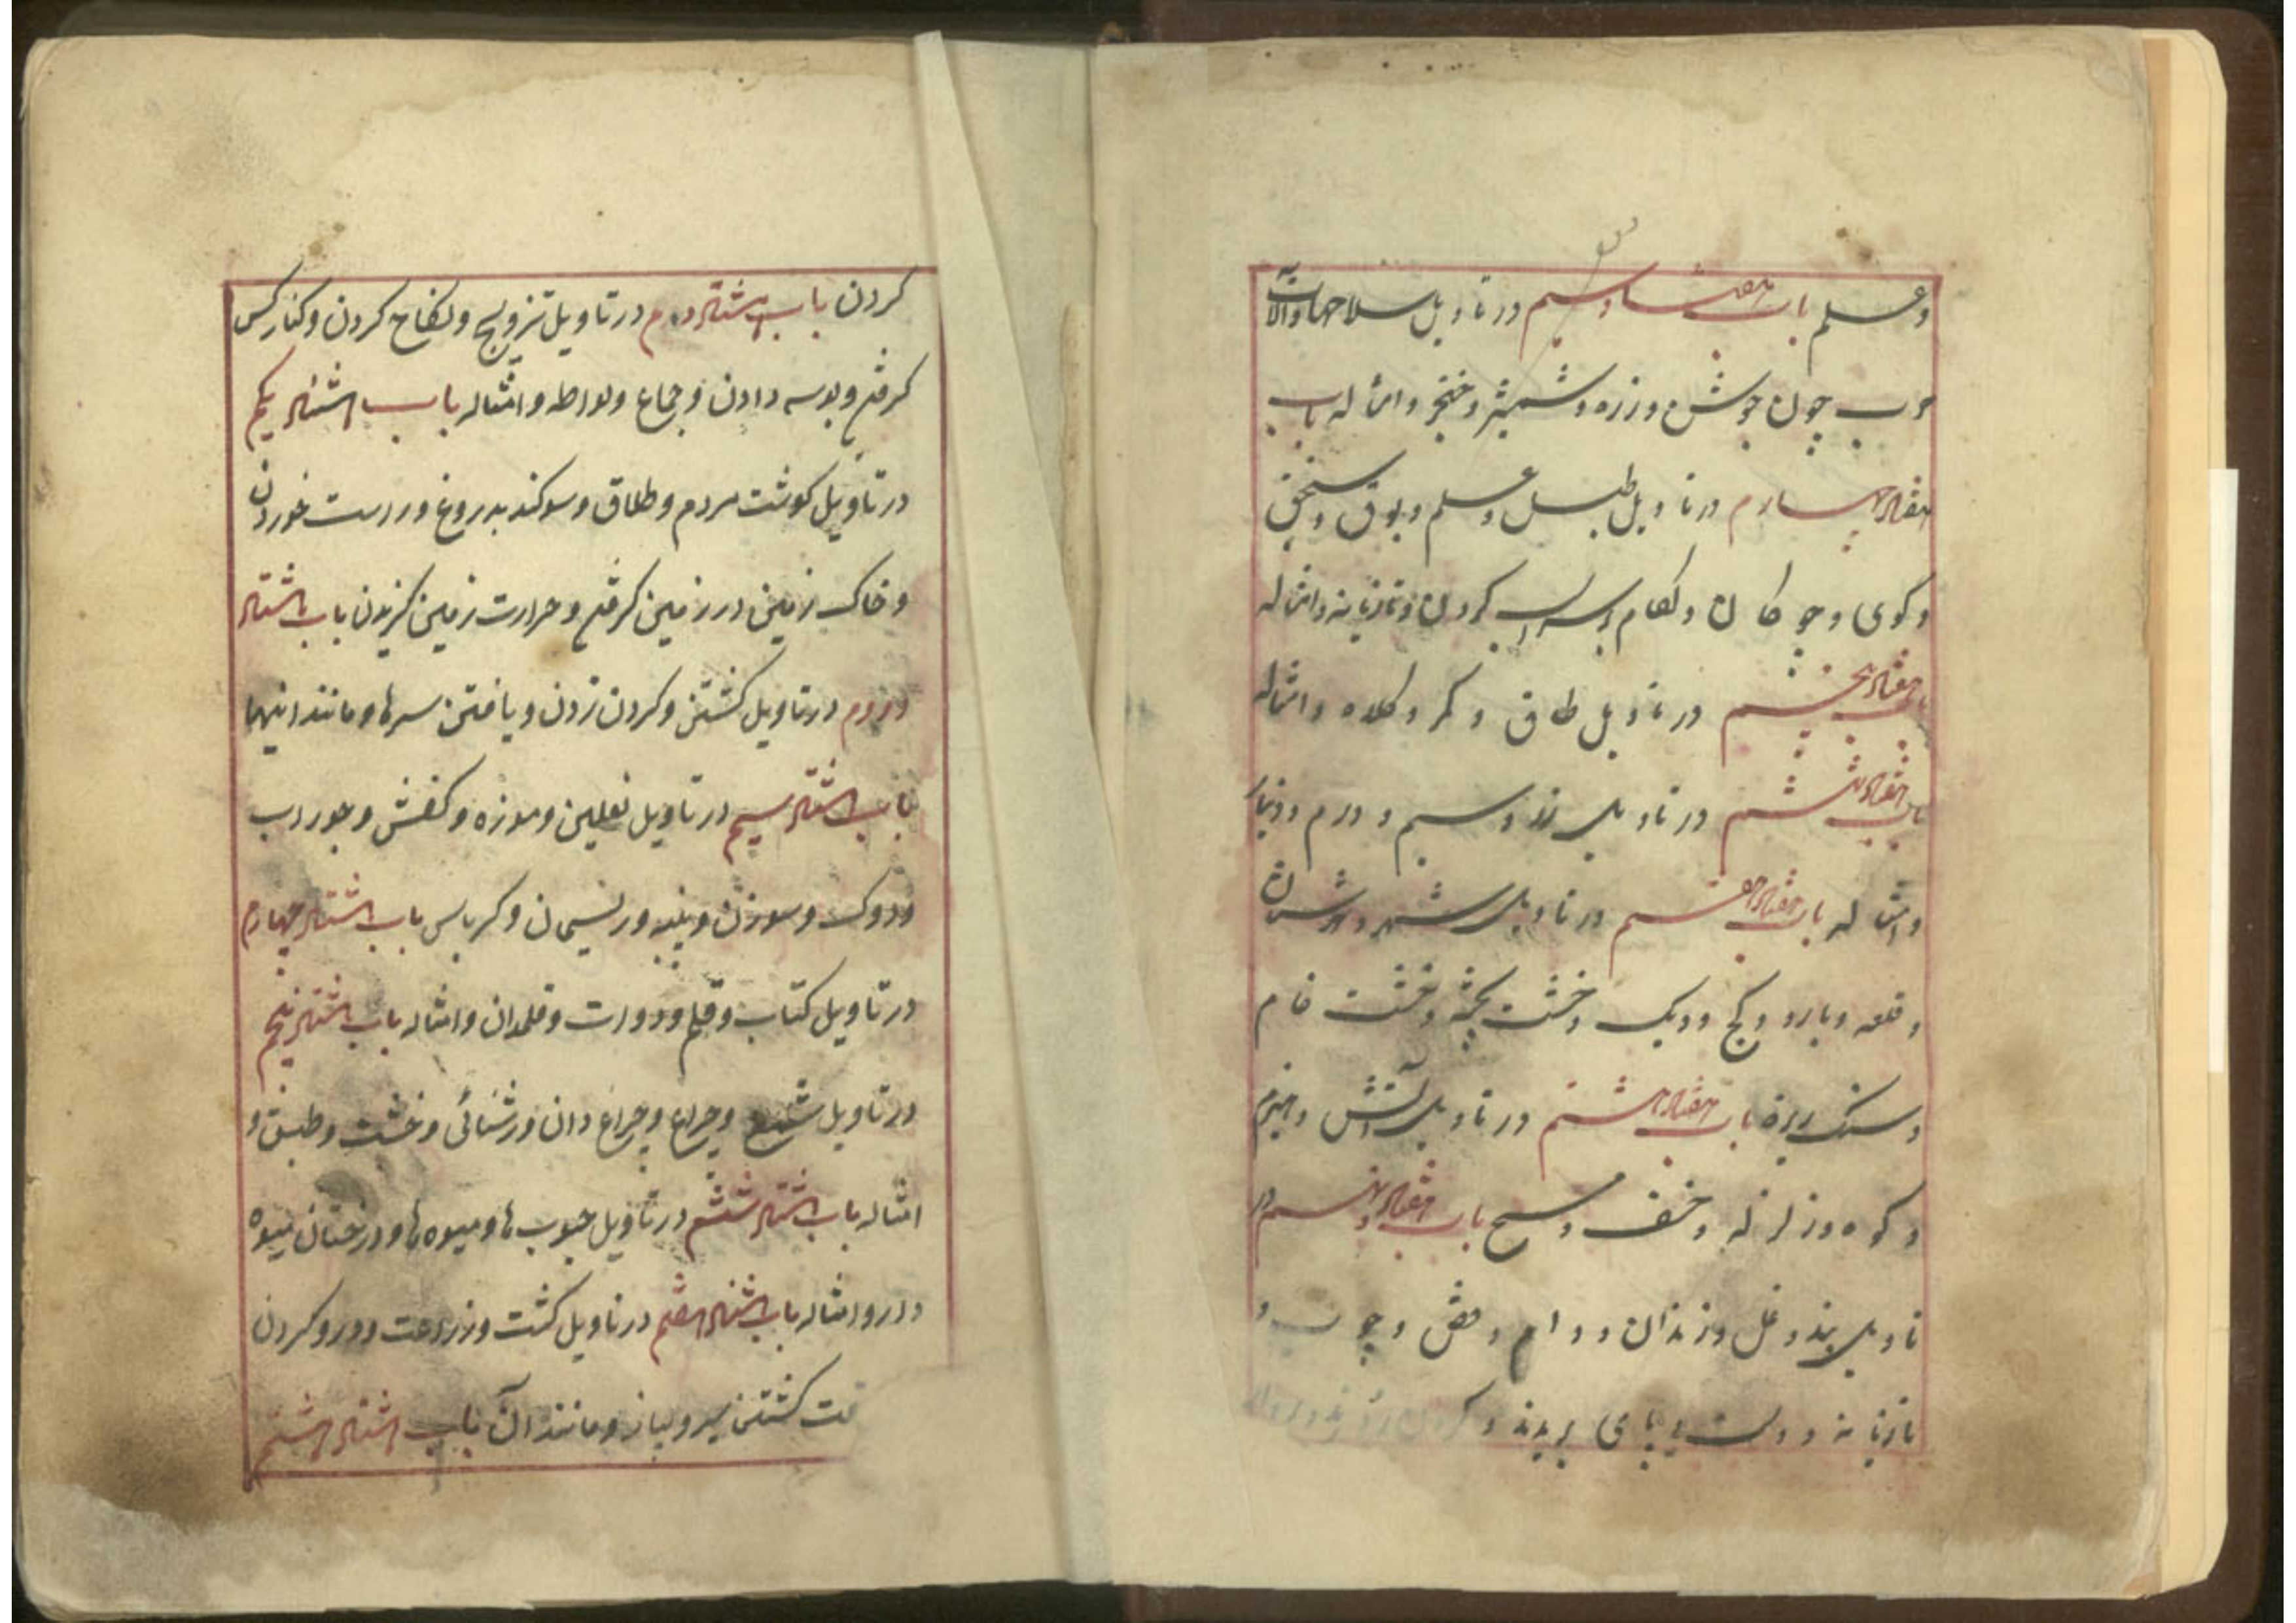 و علم باب هفتاد و سیم در تاویل سلاحها و آلات
حرب چون جوشن و زره و شمشیر و خنجر و امثاله باب
هفتاد چهارم در تاویل طبل و علم و بوق و سنجق
و کوی و چوکان و لکام و سراب کردن و تازیانه و امثاله
باب هفتاد پنجم در تاویل طاق و کمر و کلاه و امثاله
باب هفتاد ششم در تاویل زر و سیم و درم و دینار
و امثاله باب هفتاد هفتم در تاویل شهر و شارستان
و قلعه و بارو و کج و دیک و خشت پخته و خشت خام
و سنک ریزه باب هفتاد هشتم در تاویل آتش و هیزم
و کوه و زلزله و خسف و مسخ باب هفتاد و نهم در
تاویل بند و غل و زندان و دام و قفص و چوب و
تازیانه و دست و پای بریدن و کردن
کردن باب هشتادم در تاویل تزویج و نکاح کردن و کنار کس
کرفتن و بوسه دادن و جماع و لواطه و امثاله باب هشتاد یکم
در تاویل کوشت مردم و طلاق و سوکند بدروغ و راست خوردن
و خاک زمین در زمین کرفتن و حرارت زمین کزیدن باب هشتاد
دوم در تاویل کشتن و کردن زدن و یافتن سرها و مانند اینها
باب هشتاد سیم در تاویل نعلین و موزه و کفش و جوراب
و دوک و سوزن و پنبه و ریسمان و کرباس باب هشتاد چهارم
در تاویل کتاب و قلم و دوات و قلمدان و امثاله باب هشتاد پنجم
در تاویل شمع و چراغ و چراغ دان و روشنائی و خشت و طبق و
امثاله باب هشتاد ششم در تاویل حبوب ها و میوه ها و درختان میوه
دار و امثاله باب هشتاد هفتم در تاویل کشت و زراعت و درو کردن
کشتن سیر و پیاز و مانند آن باب هشتاد هشتم